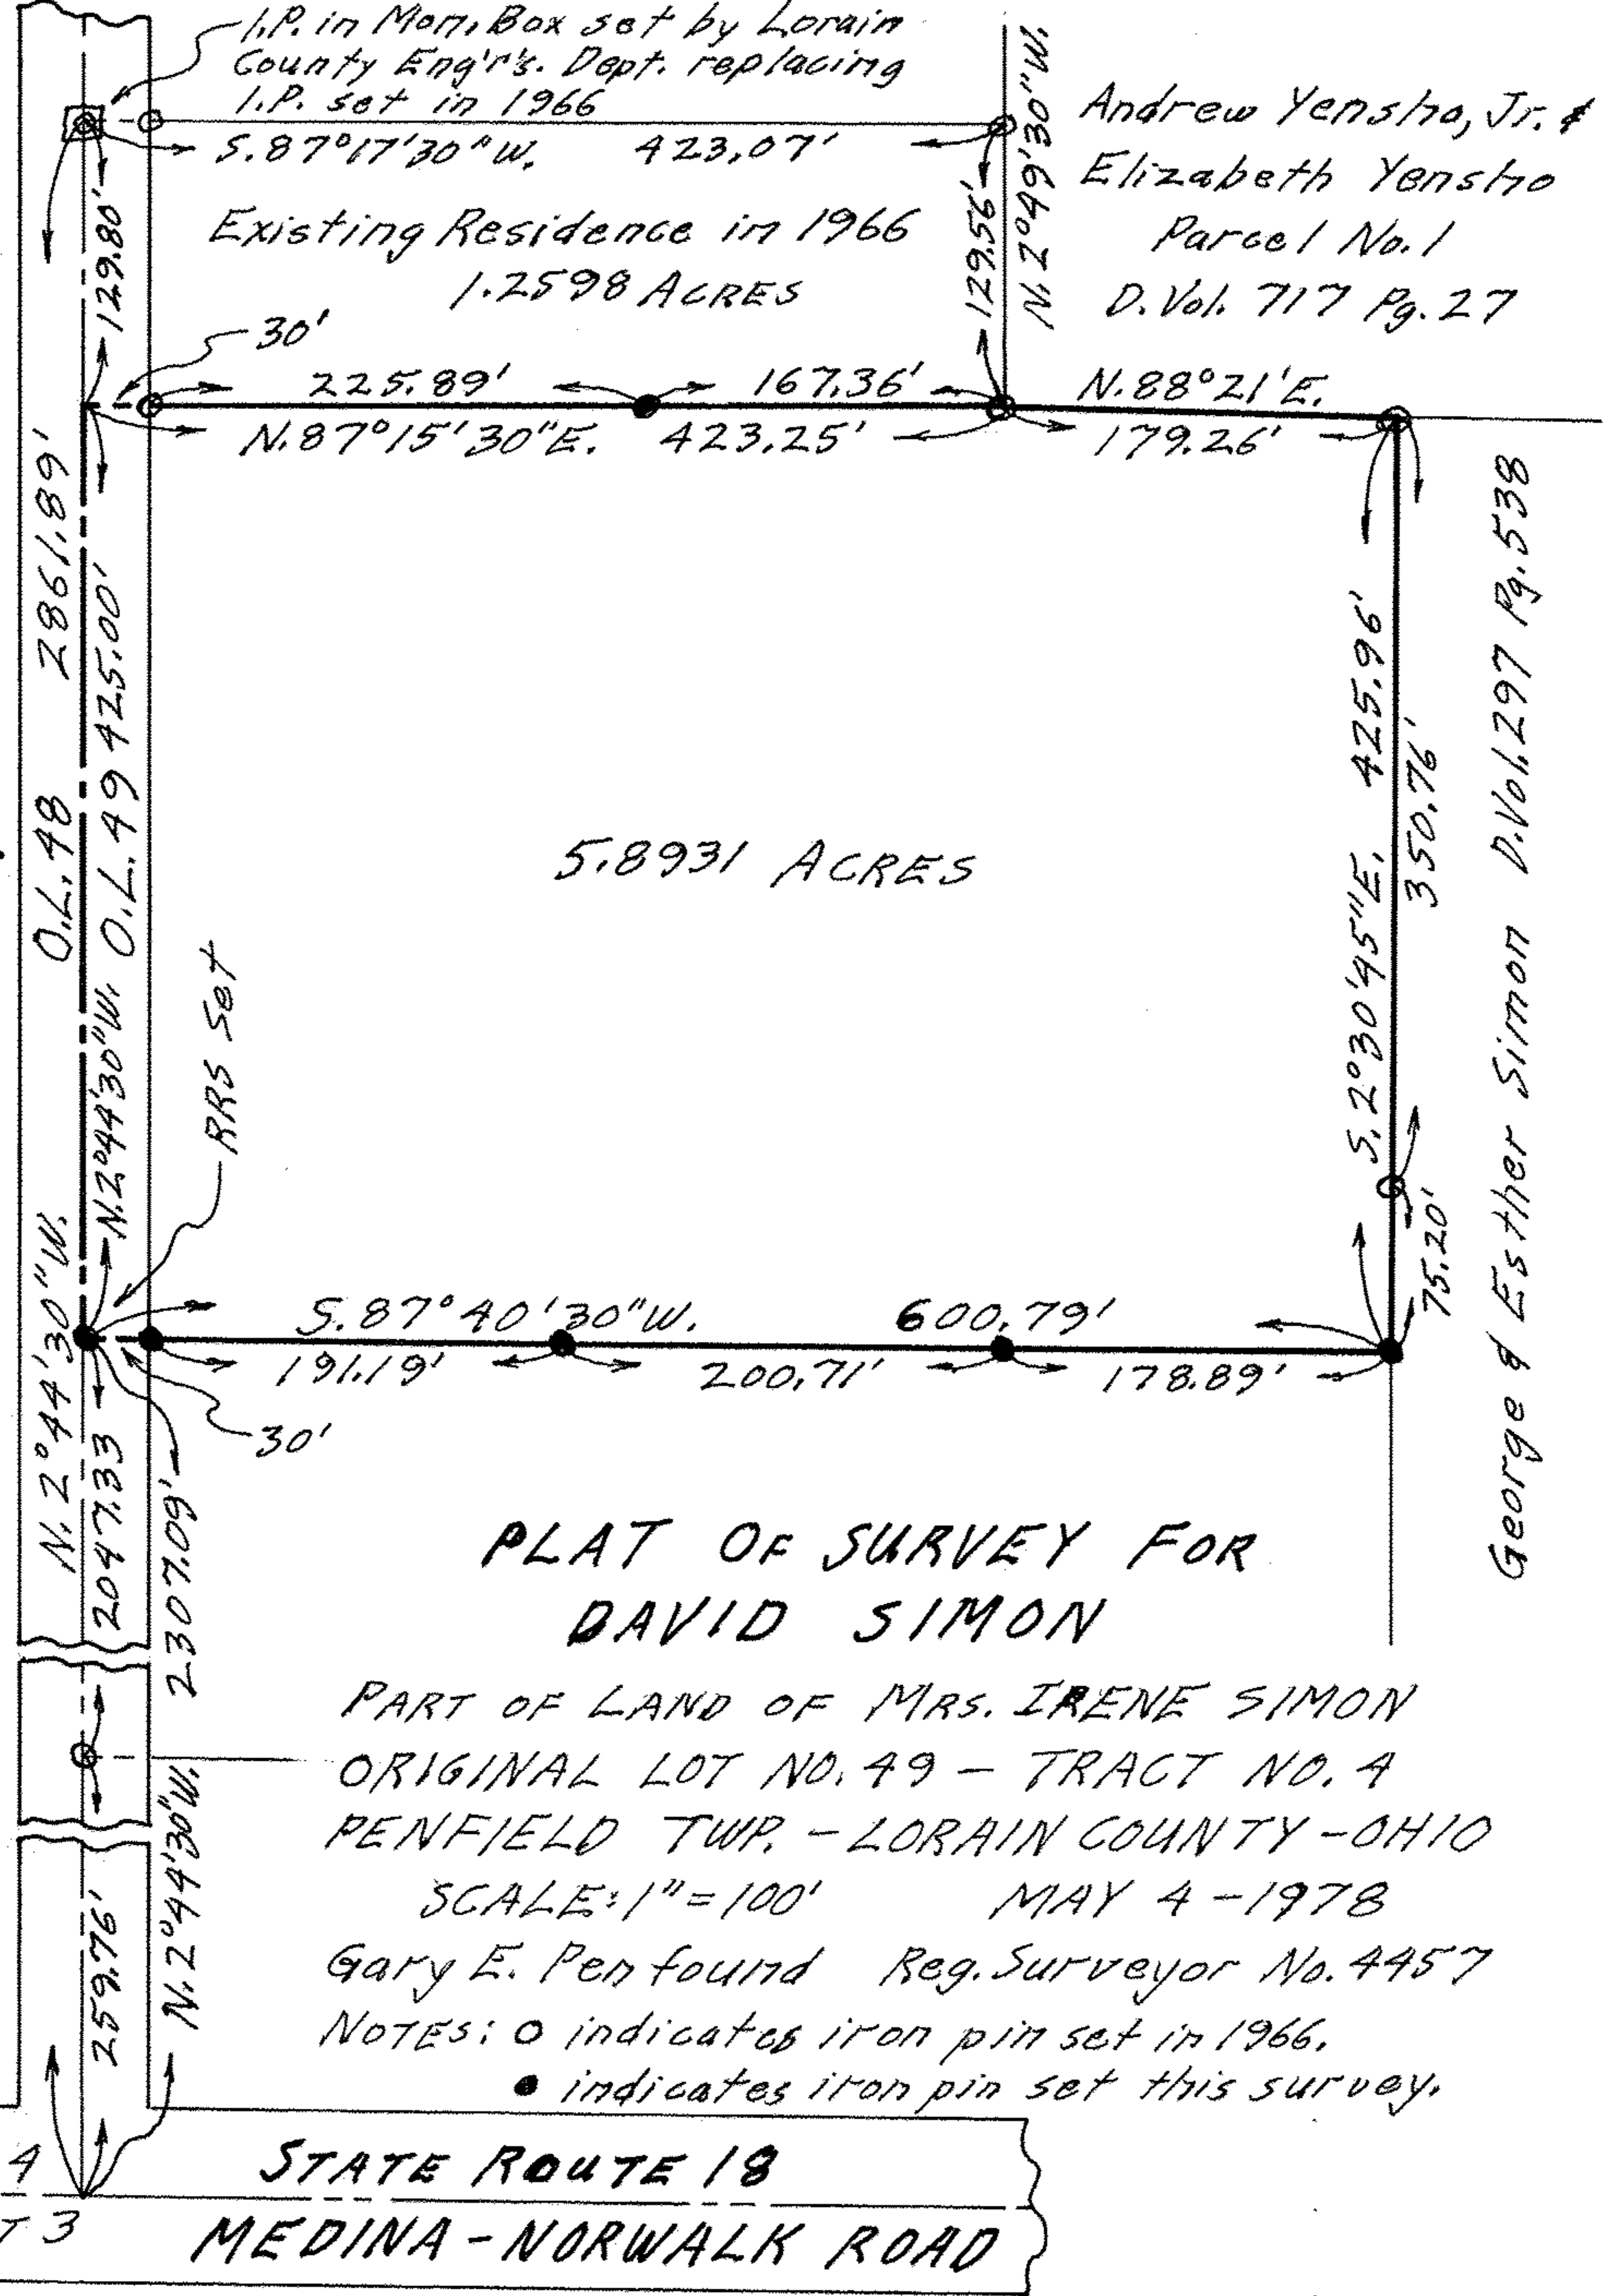 I.P. in Mon. Box set by Lorain
County Eng'r's. Dept. replacing
I.P. set in 1966
S.87°17'30"W. 423.07'
Existing Residence in 1966
1.2598 ACRES
129.80'
129.56'
N.2°49'30"W.
Andrew Yensho, Jr. &
Elizabeth Yensho
Parcel No. 1
D. Vol. 717 Pg. 27
30'
225.89' 167.36'
N.87°15'30"E. 423.25'
N.88°21'E.
179.26'
N.2°44'30"W. O.L. 48 2861.89'
N.2°44'30"W. O.L. 49 425.00'
5.8931 ACRES
S.2°30'45"E. 425.96'
350.76'
75.20'
George & Esther Simon D.Vol.297 Pg.538
RRS Set
S.87°40'30"W. 600.79'
191.19' 200.71' 178.89'
30'
2047.33
N.2°44'30"W. 2307.09'
259.76'
PLAT OF SURVEY FOR
DAVID SIMON
PART OF LAND OF MRS. IRENE SIMON
ORIGINAL LOT NO. 49 – TRACT NO. 4
PENFIELD TWP. – LORAIN COUNTY – OHIO
SCALE: 1" = 100' MAY 4 – 1978
Gary E. Penfound Reg. Surveyor No. 4457
NOTES: O indicates iron pin set in 1966.
● indicates iron pin set this survey.
4
T 3
STATE ROUTE 18
MEDINA – NORWALK ROAD